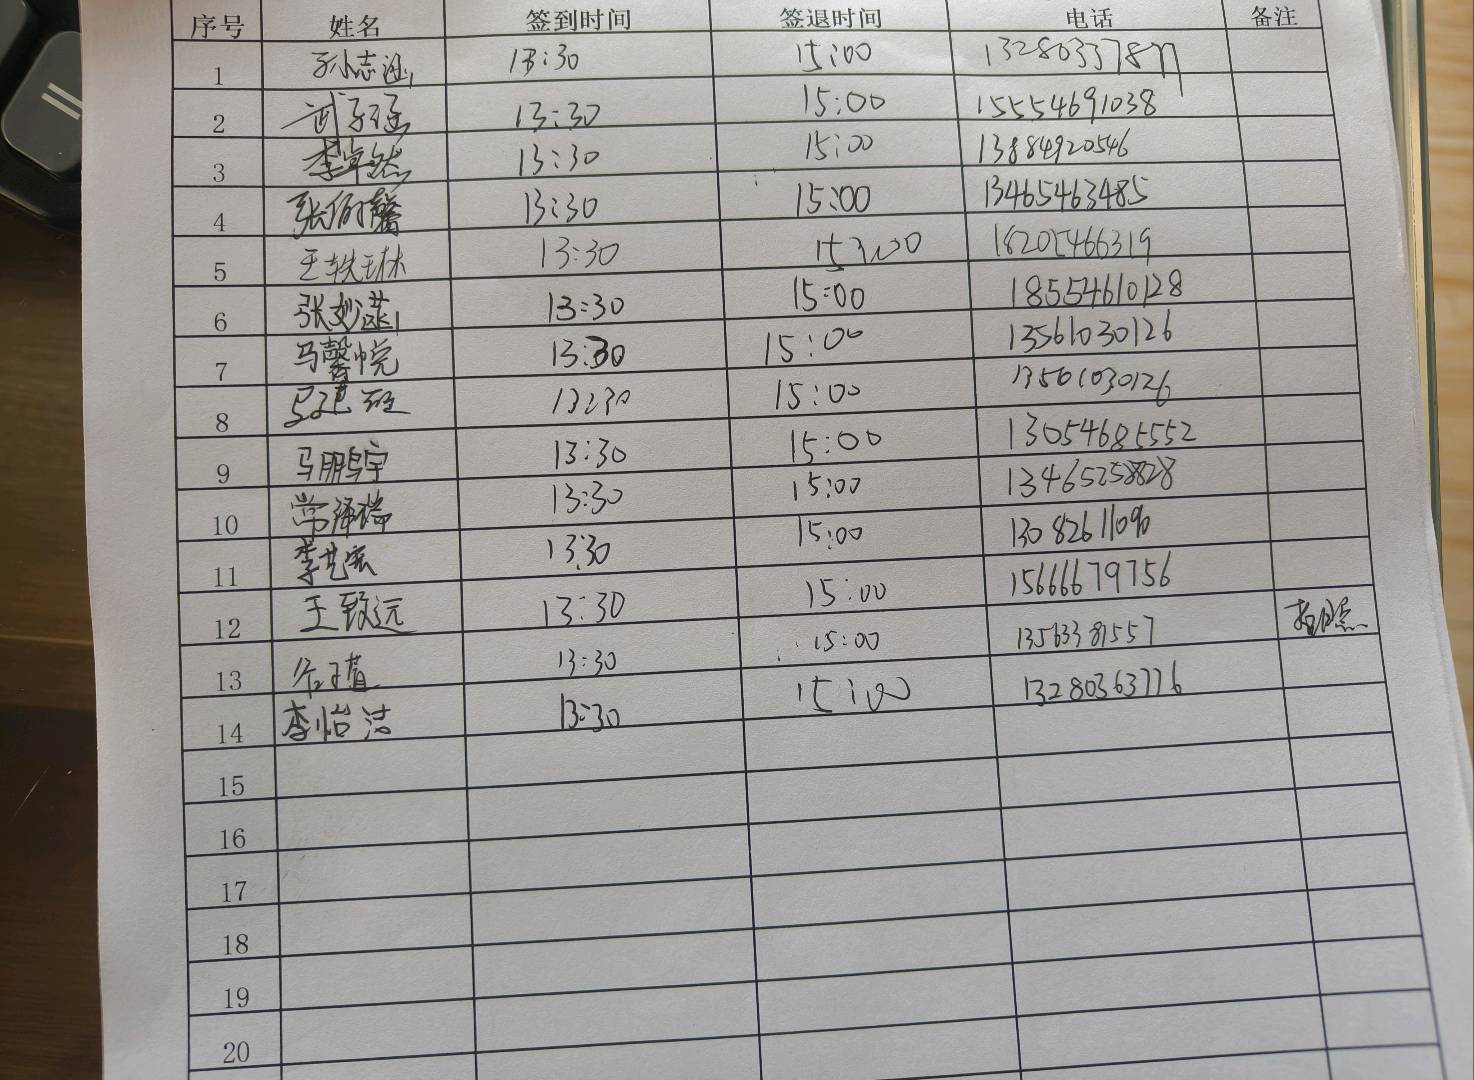 序号 姓名 签到时间 签退时间 电话 备注
1 孙志涵 13:30 15:00
2 武子涵 13:30 15:00 15554691038
3 李卓然 13:30 15:00 13884920546
4 张佰馨 13:30 15:00 13465463485
5 王轶琳 13:30 15:00 18205466319
6 张妙涵 13:30 15:00 18554610128
7 马馨悦 13:30 15:00 13561030126
8 13:30 15:00 13561030126
9 马鹏宇 13:30 15:00 13054685552
10 常泽瑞 13:30 15:00 13465258828
11 李艺宸 13:30 15:00 13082611090
12 王致远 13:30 15:00 15666679756
13 13:30 15:00 13563381557
14 李怡洁 13:30 15:00 13280363776
15
16
17
18
19
20